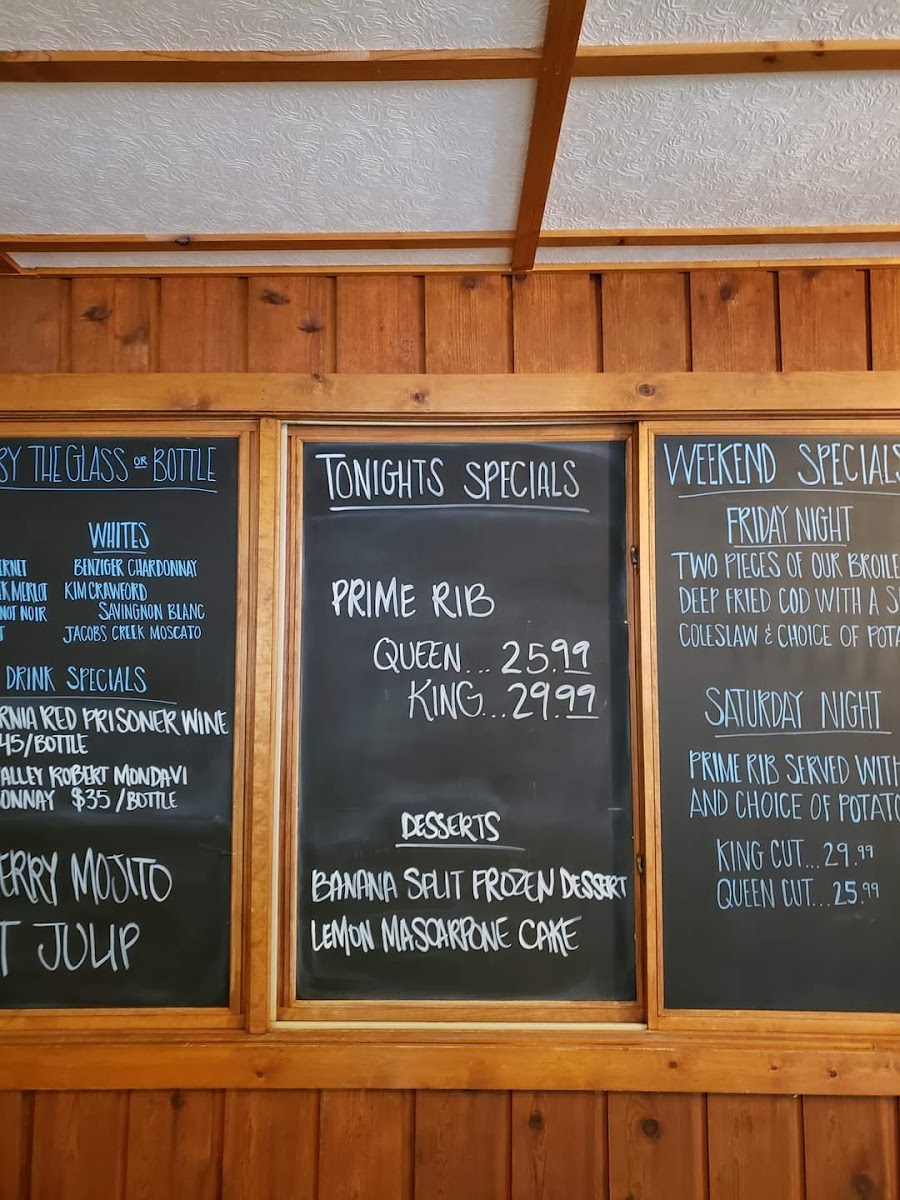 BY THE GLASS OR BOTTLE
WHITES
BENZIGER CHARDONNAY
KIM CRAWFORD
NOT NOIR SAVINGNON BLANC
JACOBS CREEK MOSCATO
DRINK SPECIALS
RNIA RED PRISONER WINE
45/BOTTLE
ALLEY ROBERT MONDAVI
ONNAY $35/BOTTLE
ERRY MOJITO
T JULIP
TONIGHTS SPECIALS
PRIME RIB
QUEEN... 25.99
KING... 29.99
DESSERTS
BANANA SPLIT FROZEN DESSERT
LEMON MASCARPONE CAKE
WEEKEND SPECIALS
FRIDAY NIGHT
TWO PIECES OF OUR BROILE
DEEP FRIED COD WITH A S
COLESLAW & CHOICE OF POTA
SATURDAY NIGHT
PRIME RIB SERVED WITH
AND CHOICE OF POTATO
KING CUT... 29.99
QUEEN CUT... 25.99